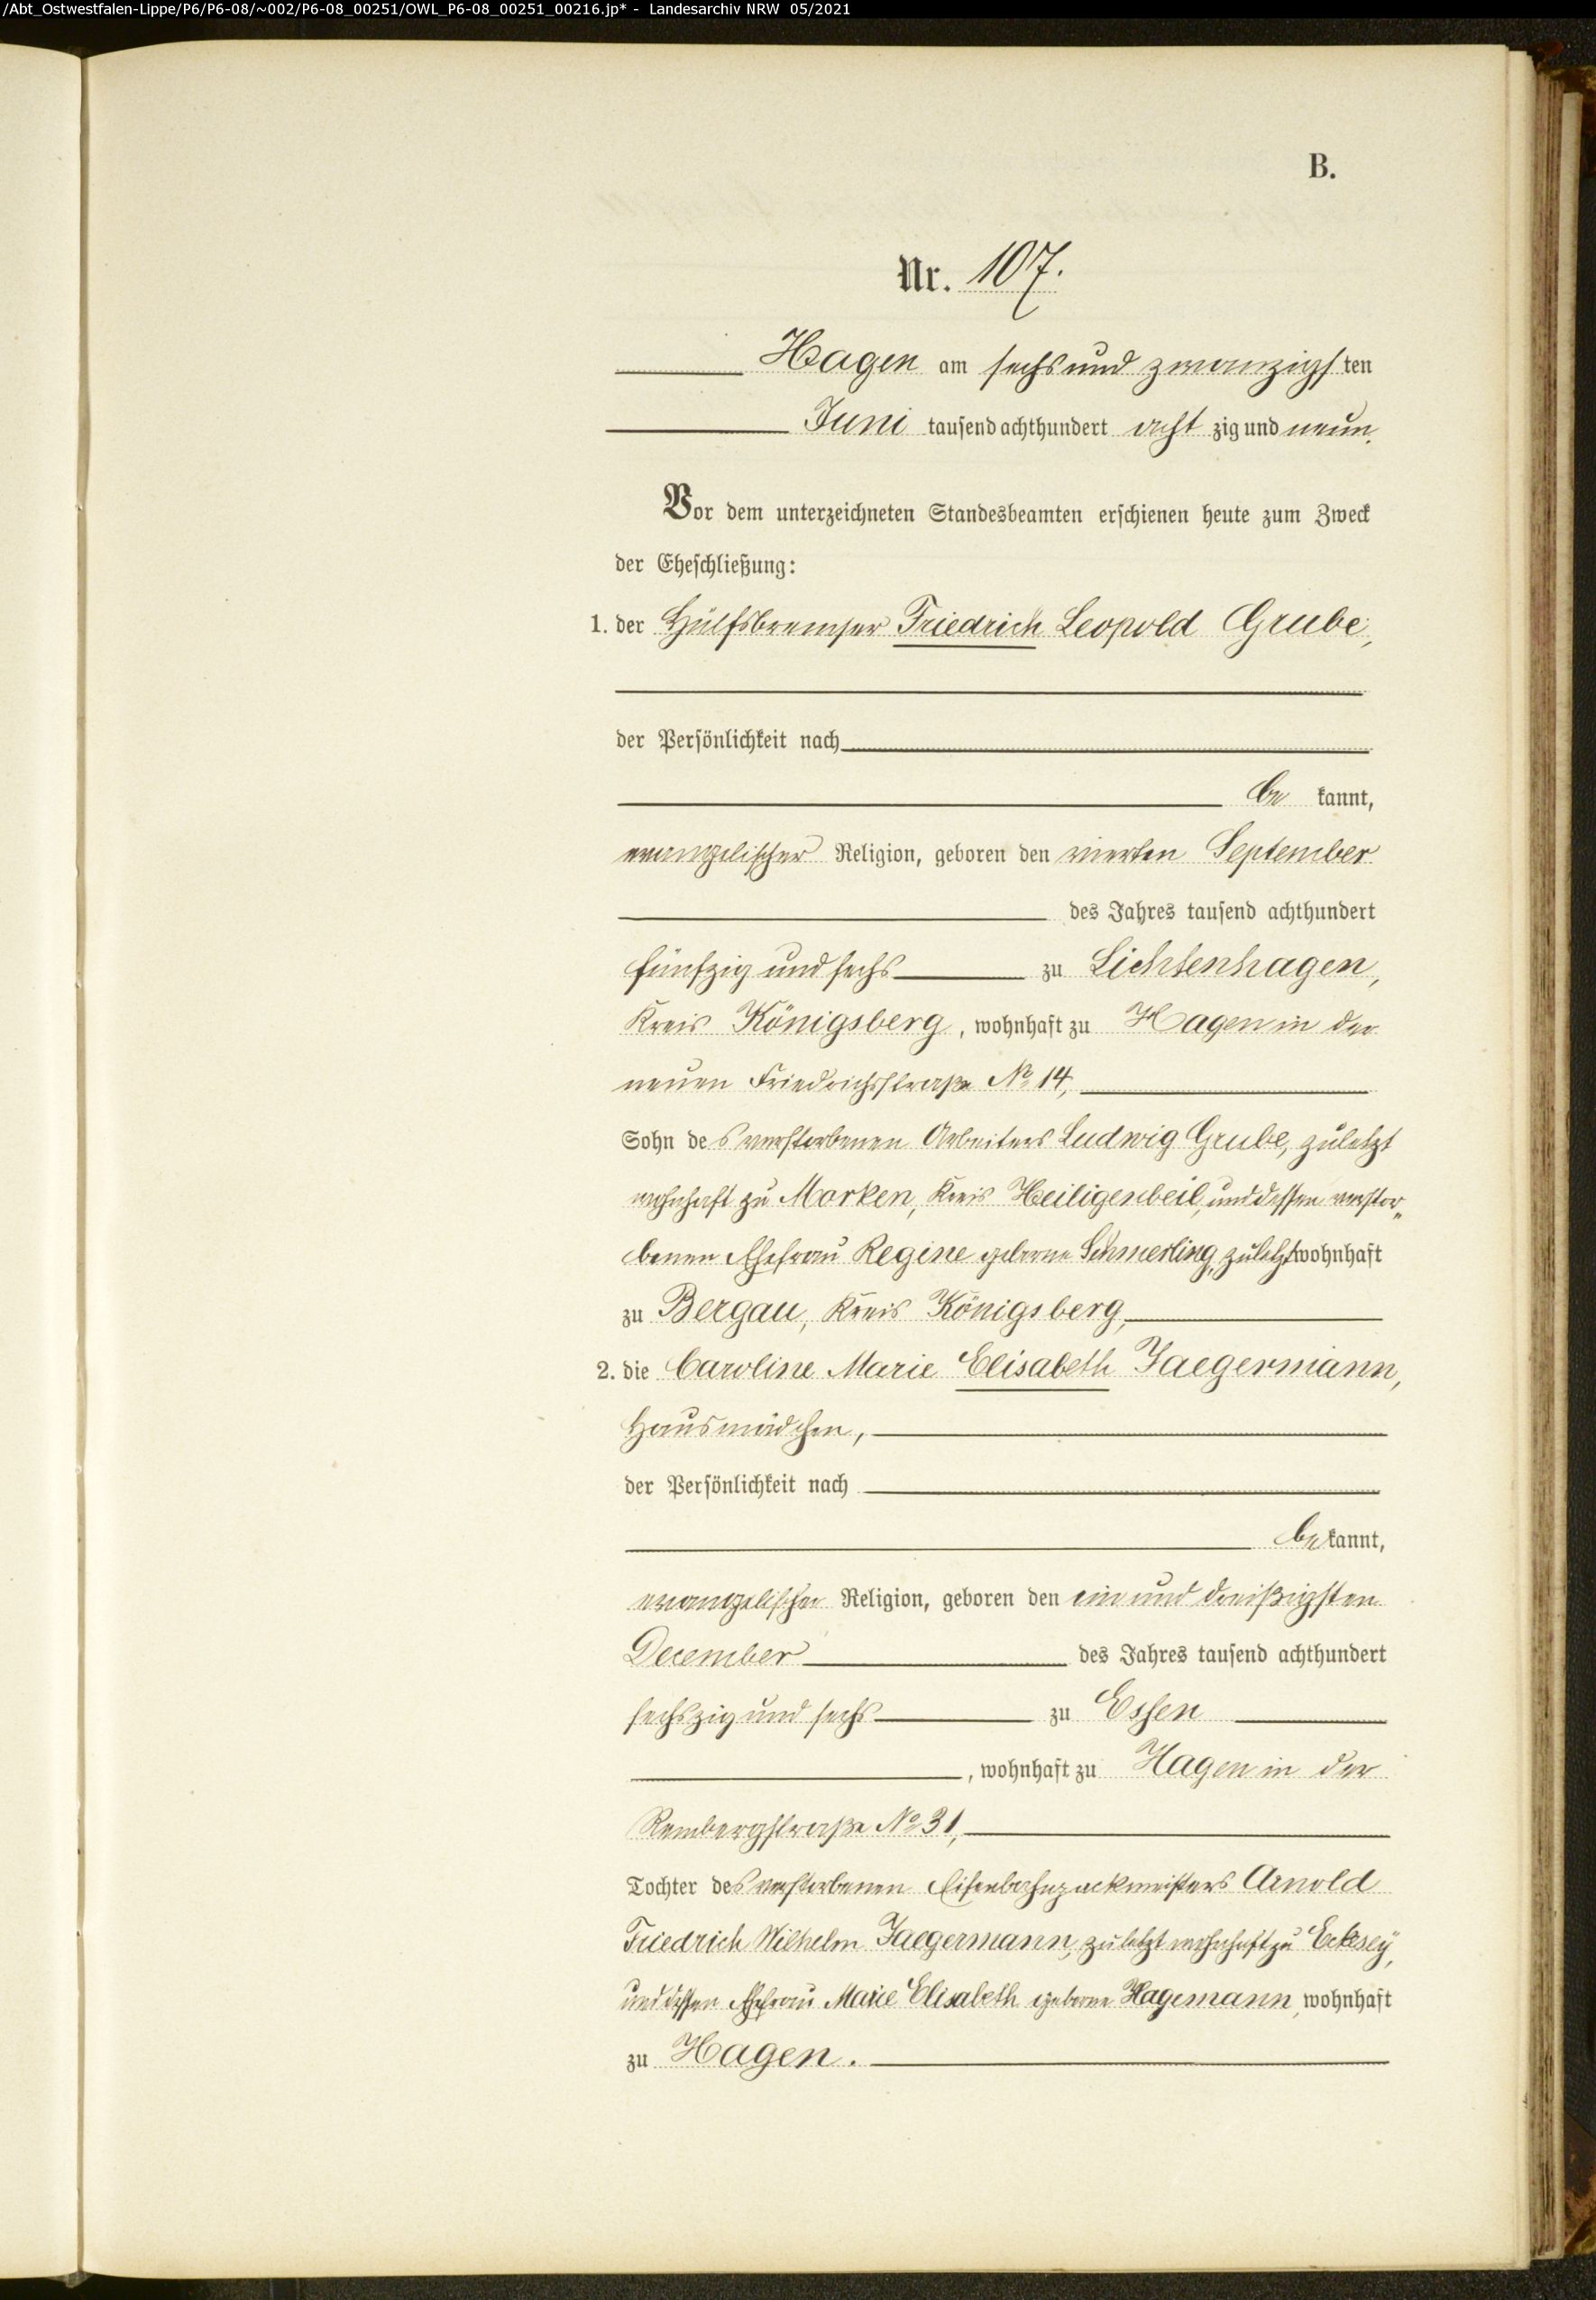 /Abt_Ostwestfalen-Lippe/P6/P6-08/~002/P6-08_00251/OWL_P6-08_00251_00216.jp* - Landesarchiv NRW 05/2021
B.
Nr. 107.
Hagen am sechs und zwanzigsten
Juni tausend achthundert achtzig und neun.
Vor dem unterzeichneten Standesbeamten erschienen heute zum Zweck
der Eheschließung:
1. der Hülfsbremser Friedrich Leopold Grube,
der Persönlichkeit nach
be kannt,
evangelischer Religion, geboren den vierten September
des Jahres tausend achthundert
fünfzig und sechs zu Lichtenhagen,
Kreis Königsberg, wohnhaft zu Hagen in der
neuen Friedrichsstraße No 14,
Sohn des verstorbenen Arbeiters Ludwig Grube, zuletzt
wohnhaft zu Morken, Kreis Heiligenbeil, und dessen verstor„
benen Ehefrau Regine geborne Schmerling, zuletzt wohnhaft
zu Bergau, Kreis Königsberg,
2. die Caroline Marie Elisabeth Jaegermann,
Hausmädchen,
der Persönlichkeit nach
bekannt,
evangelischer Religion, geboren den ein und dreißigsten
December des Jahres tausend achthundert
sechszig und sechs zu Essen
, wohnhaft zu Hagen in der
Rembergstraße No 31,
Tochter des verstorbenen Eisenbahnpackmeisters Arnold
Friedrich Wilhelm Jaegermann, zuletzt wohnhaft zu Eckesey,
und dessen Ehefrau Marie Elisabeth geborne Hagemann, wohnhaft
zu Hagen.